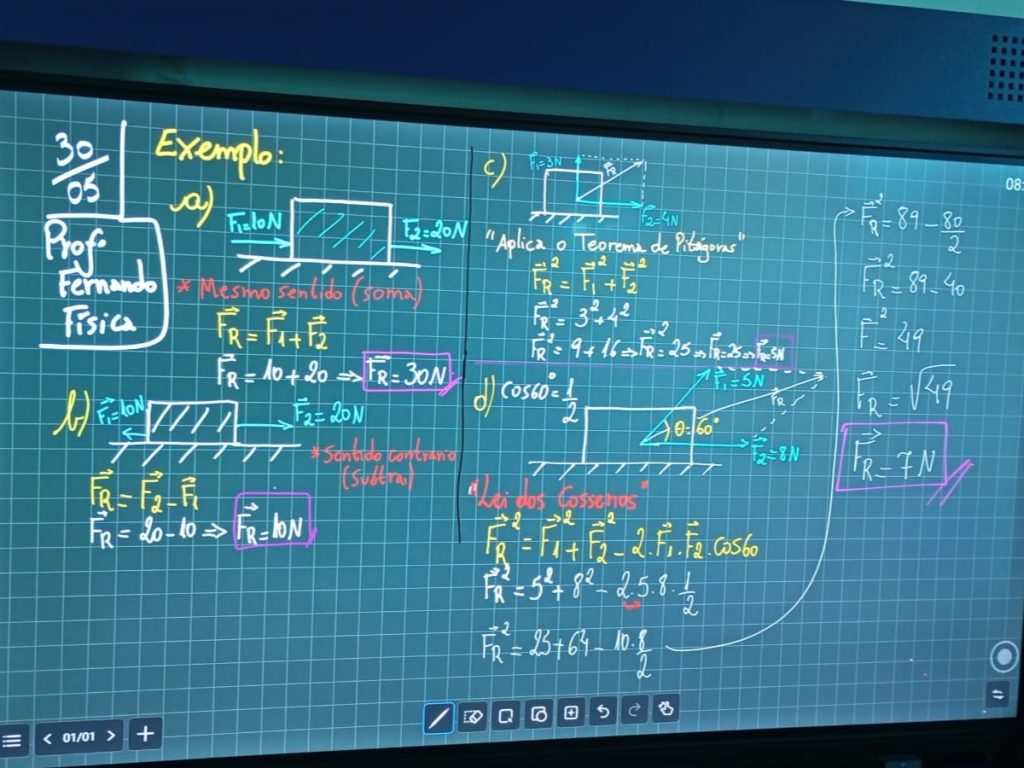 30
05
Prof.
Fernando
Física
Exemplo:
a)
F⃗₁=10N
F⃗₂=20N
* Mesmo sentido (soma)
F⃗R = F⃗1 + F⃗2
F⃗R = 10 + 20 ⇒ F⃗R = 30N
b)
F⃗₁=10N
F⃗₂=20N
* Sentido contrario
(subtrai)
F⃗R = F⃗2 - F⃗1
F⃗R = 20 - 10 ⇒ F⃗R = 10N
c)
F⃗₁=3N
F⃗R
F⃗₂=4N
"Aplica o Teorema de Pitágoras"
F⃗R² = F⃗1² + F⃗2²
F⃗R² = 3² + 4²
F⃗R² = 9 + 16 ⇒ F⃗R² = 25 ⇒ F⃗R = 25 ⇒ F⃗R = 5N
d)
cos60° = 1/2
F⃗₁=5N
F⃗R
θ=60°
F⃗₂=8N
"Lei dos Cossenos"
F⃗R² = F⃗1² + F⃗2² - 2.F⃗1.F⃗2.cos60
F⃗R² = 5² + 8² - 2.5.8.1/2
F⃗R² = 25 + 64 - 10.8/2
F⃗R² = 89 - 80/2
F⃗R² = 89 - 40
F⃗² = 49
F⃗R = √49
F⃗R = 7N
08:
01/01